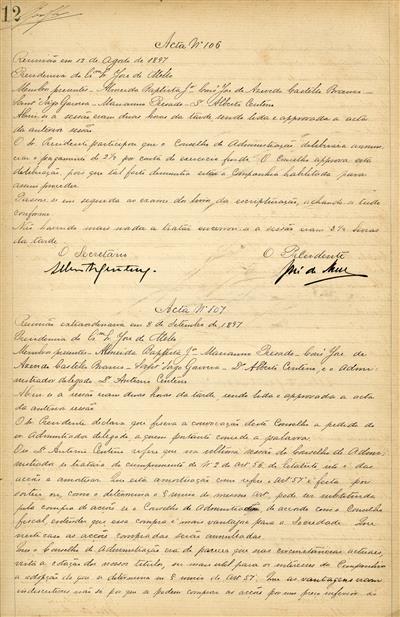 12
Acta Nº 106
Reunião em 12 de Agosto de 1897
Presidencia do Exmo Sr José de Mello
Membros presentes - Almeida Baptista Jor - José de Azevedo Castello Branco -
- Marianno Presado - Dr Alberto Centeno
Abriu-se a sessão eram duas horas da tarde sendo lida e approvada a acta
da anterior sessão
O Sr Presidente participou que o Conselho de Administração deliberara annun-
ciar o pagamento de 2% por conta do exercicio findo. O Conselho approva esta
deliberação, pois que tal foi a Companhia habilitada para
assim proceder
Passou-se em seguida ao exame dos livros da escripturação, achando-se tudo
conforme
Não havendo mais nada a tratar encerrou-se a sessão eram 2½ horas
da tarde
O Secretario O Presidente
José de Mello
Acta Nº 107
Reunião extraordinaria em 8 de Setembro de 1897
Presidencia do Exmo Sr José de Mello
Membros presentes - Almeida Baptista Jor Marianno Presado - José de
Azevedo Castello Branco - - Dr Alberto Centeno, e o Admi-
nistrador delegado Sr Antonio Centeno
Abriu-se a sessão eram duas horas da tarde, sendo lida e approvada a acta
da anterior sessão
O Sr Presidente declara que fizera a convocação deste Conselho a pedido do
Sr Administrador delegado a quem portanto concede a palavra.
O Sr Antonio Centeno refere que na ultima sessão do Conselho de Admi-
nistração se tratara do cumprimento do Nº 2 do Art 56 do Estatuto isto é das
acções a amortisar. Que esta amortisação como refere o Artº 57 é feita por
sorteio ou, como o determina o § unico do mesmo Art. pode ser substituida
pela compra de acções se o Conselho de Administração de accordo com o Conselho
fiscal, entender que essa compra é mais vantajosa para a Sociedade. Que
neste caso as acções compradas serão annulladas
Que o Conselho de Administração era de parecer que nas circumstancias actuaes,
vista a cotação dos nossos titulos, era mais util para os interesses da Companhia
a adopção do que se determina no § unico do Art 57. Que as vantagens eram
indiscutiveis não só por que se podem comprar as acções por um preço inferior ao